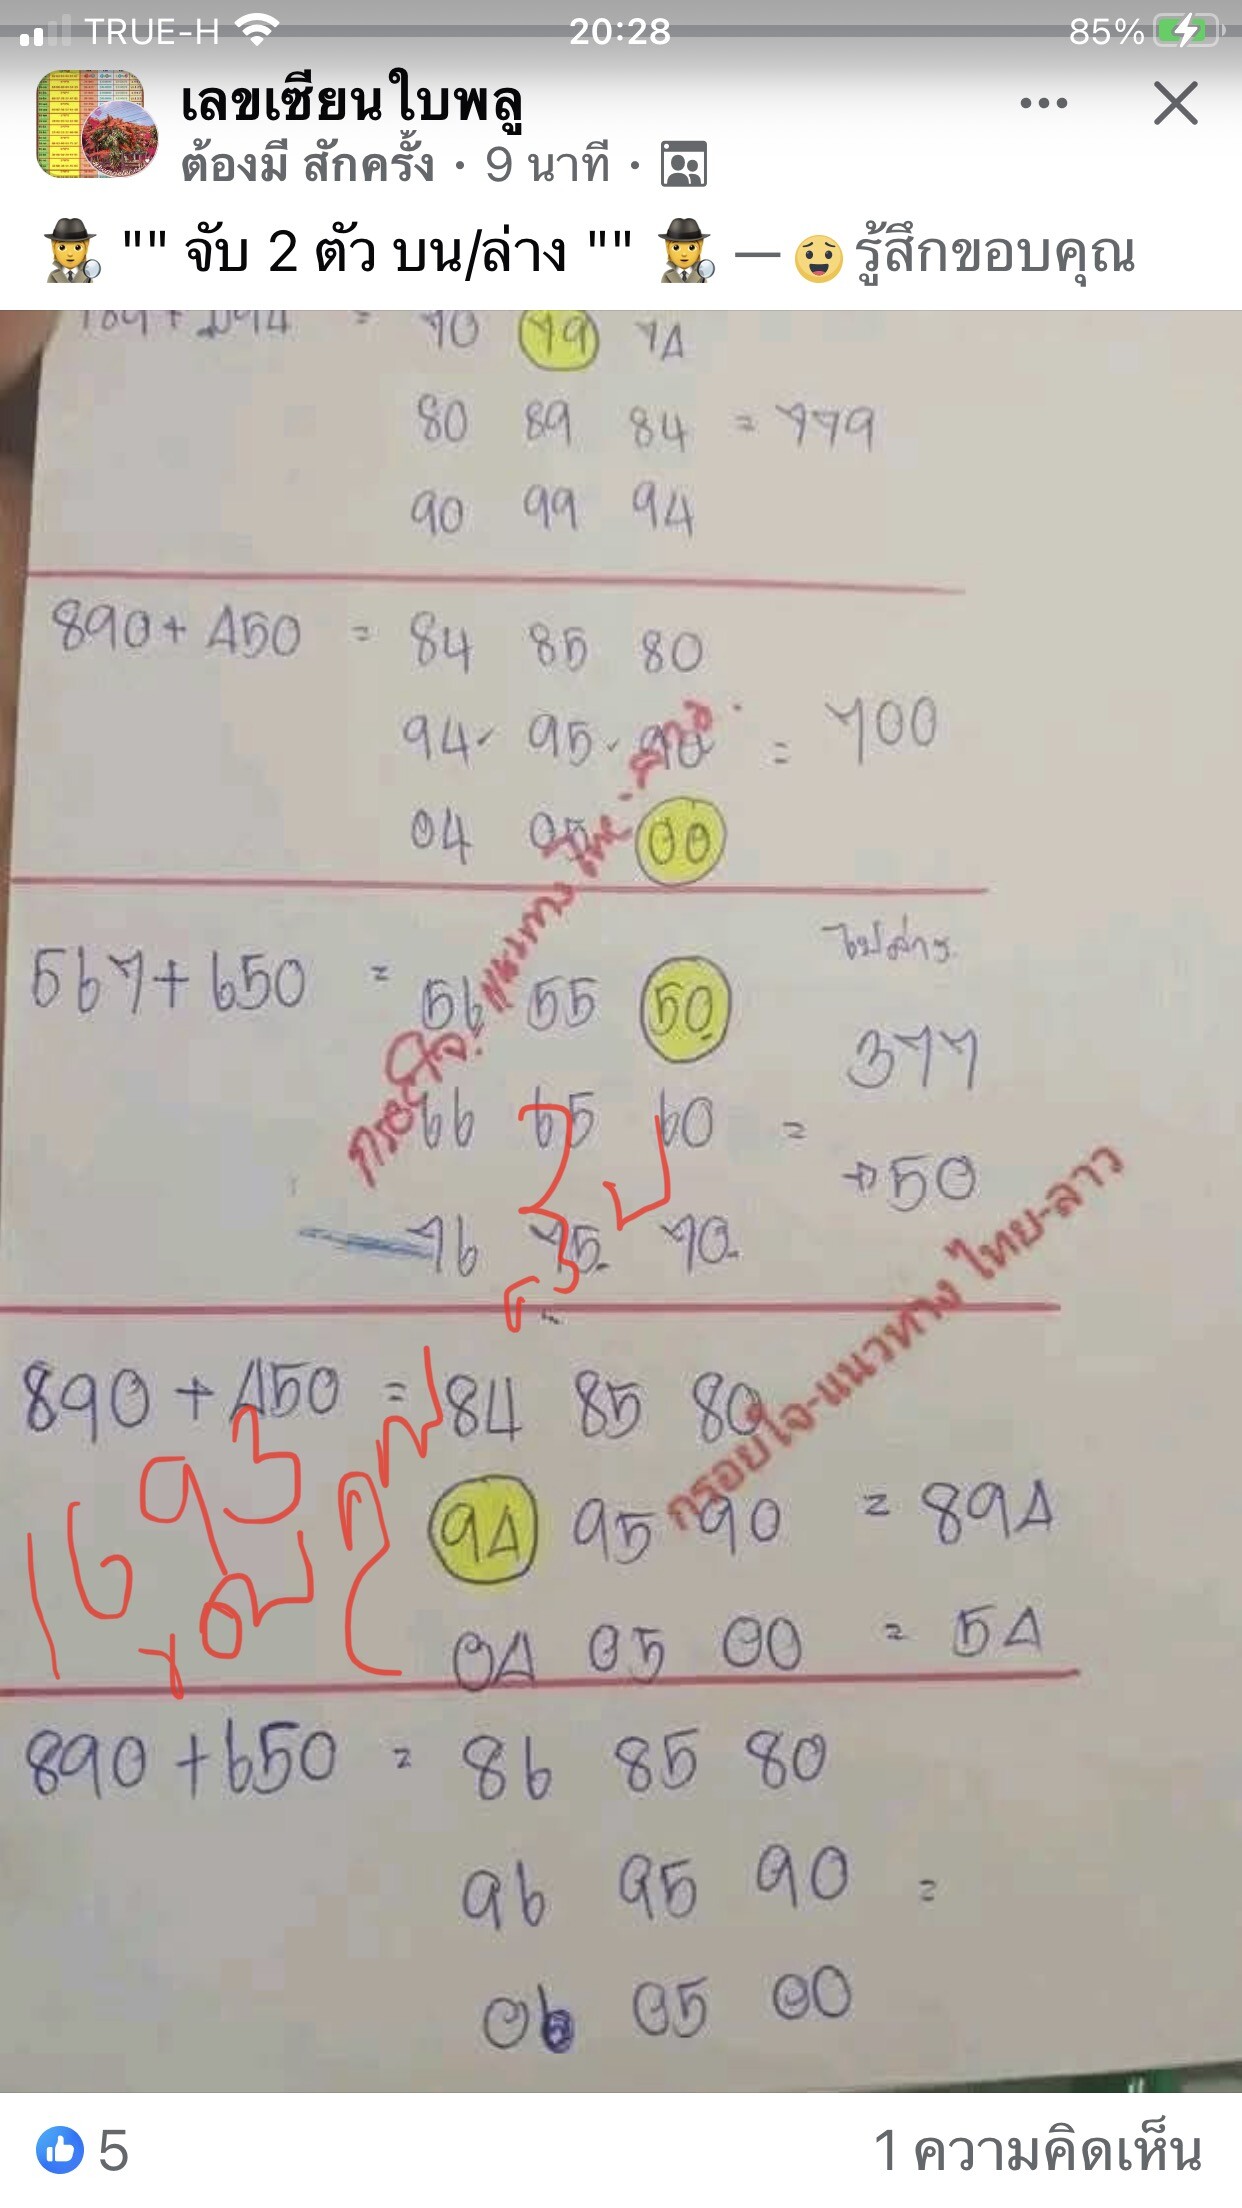 TRUE-H 20:28 85%
เลขเซียนใบพลู
ต้องมี สักครั้ง · 9 นาที ·
"" จับ 2 ตัว บน/ล่าง "" — รู้สึกขอบคุณ
70 79 74
80 89 84 = 779
90 99 94
890+450 = 84 85 80
94 95 90 = 700
04 05 00
ไปล่าง
567+650 = 56 55 50
377
66 65 60 =
→50
76 75 70
890+450 = 84 85 80
94 95 90 = 894
04 05 00 = 54
กรอยใจ-แนวทาง ไทย-ลาว
กรอยใจ-แนวทาง ไทย-ลาว
16 93
890+650 = 86 85 80
96 95 90 =
06 05 00
5 1 ความคิดเห็น